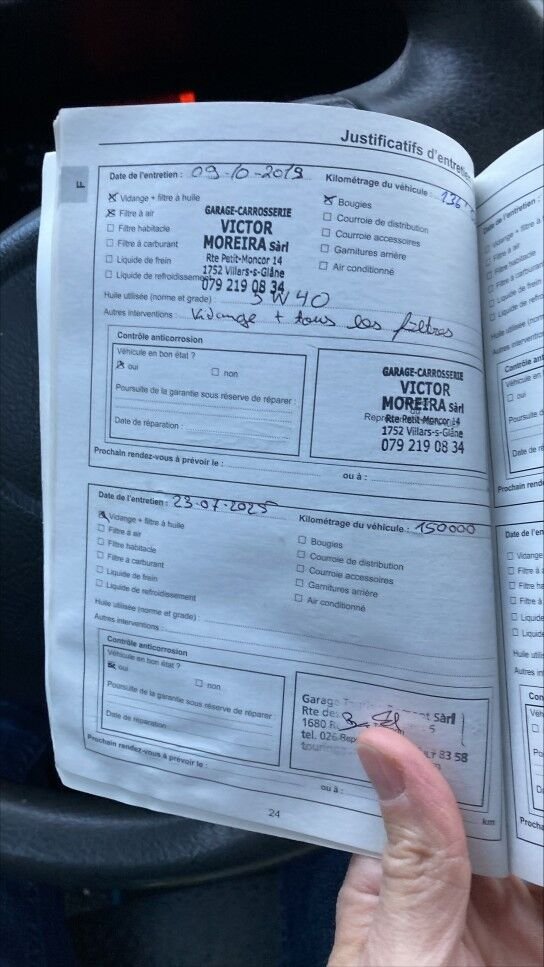 Justificatifs d'entretien
F
Date de l'entretien : 09-10-2019
Kilométrage du véhicule : 136
Vidange + filtre à huile
Filtre à air
Filtre habitacle
Filtre à carburant
Liquide de frein
Liquide de refroidissement
Bougies
Courroie de distribution
Courroie accessoires
Garnitures arrière
Air conditionné
GARAGE-CARROSSERIE
VICTOR
MOREIRA Sàrl
Rte Petit-Moncor 14
1752 Villars-s-Glâne
079 219 08 34
Huile utilisée (norme et grade) : 5W40
Autres interventions : Vidange + tous les filtres
Contrôle anticorrosion
Véhicule en bon état ?
oui
non
Poursuite de la garantie sous réserve de réparer :
Date de réparation :
GARAGE-CARROSSERIE
VICTOR
MOREIRA Sàrl
Rte Petit-Moncor 14
1752 Villars-s-Glâne
079 219 08 34
Prochain rendez-vous à prévoir le :
ou à :
Date de l'entretien : 23-07-2025
Kilométrage du véhicule : 150000
Vidange + filtre à huile
Filtre à air
Filtre habitacle
Filtre à carburant
Liquide de frein
Liquide de refroidissement
Bougies
Courroie de distribution
Courroie accessoires
Garnitures arrière
Air conditionné
Huile utilisée (norme et grade) :
Autres interventions :
Contrôle anticorrosion
Véhicule en bon état ?
oui
non
Poursuite de la garantie sous réserve de réparer
Date de réparation :
Garage Sàrl
Rte de
1680
tel. 026 83 58
Prochain rendez-vous à prévoir le :
ou à :
km
24